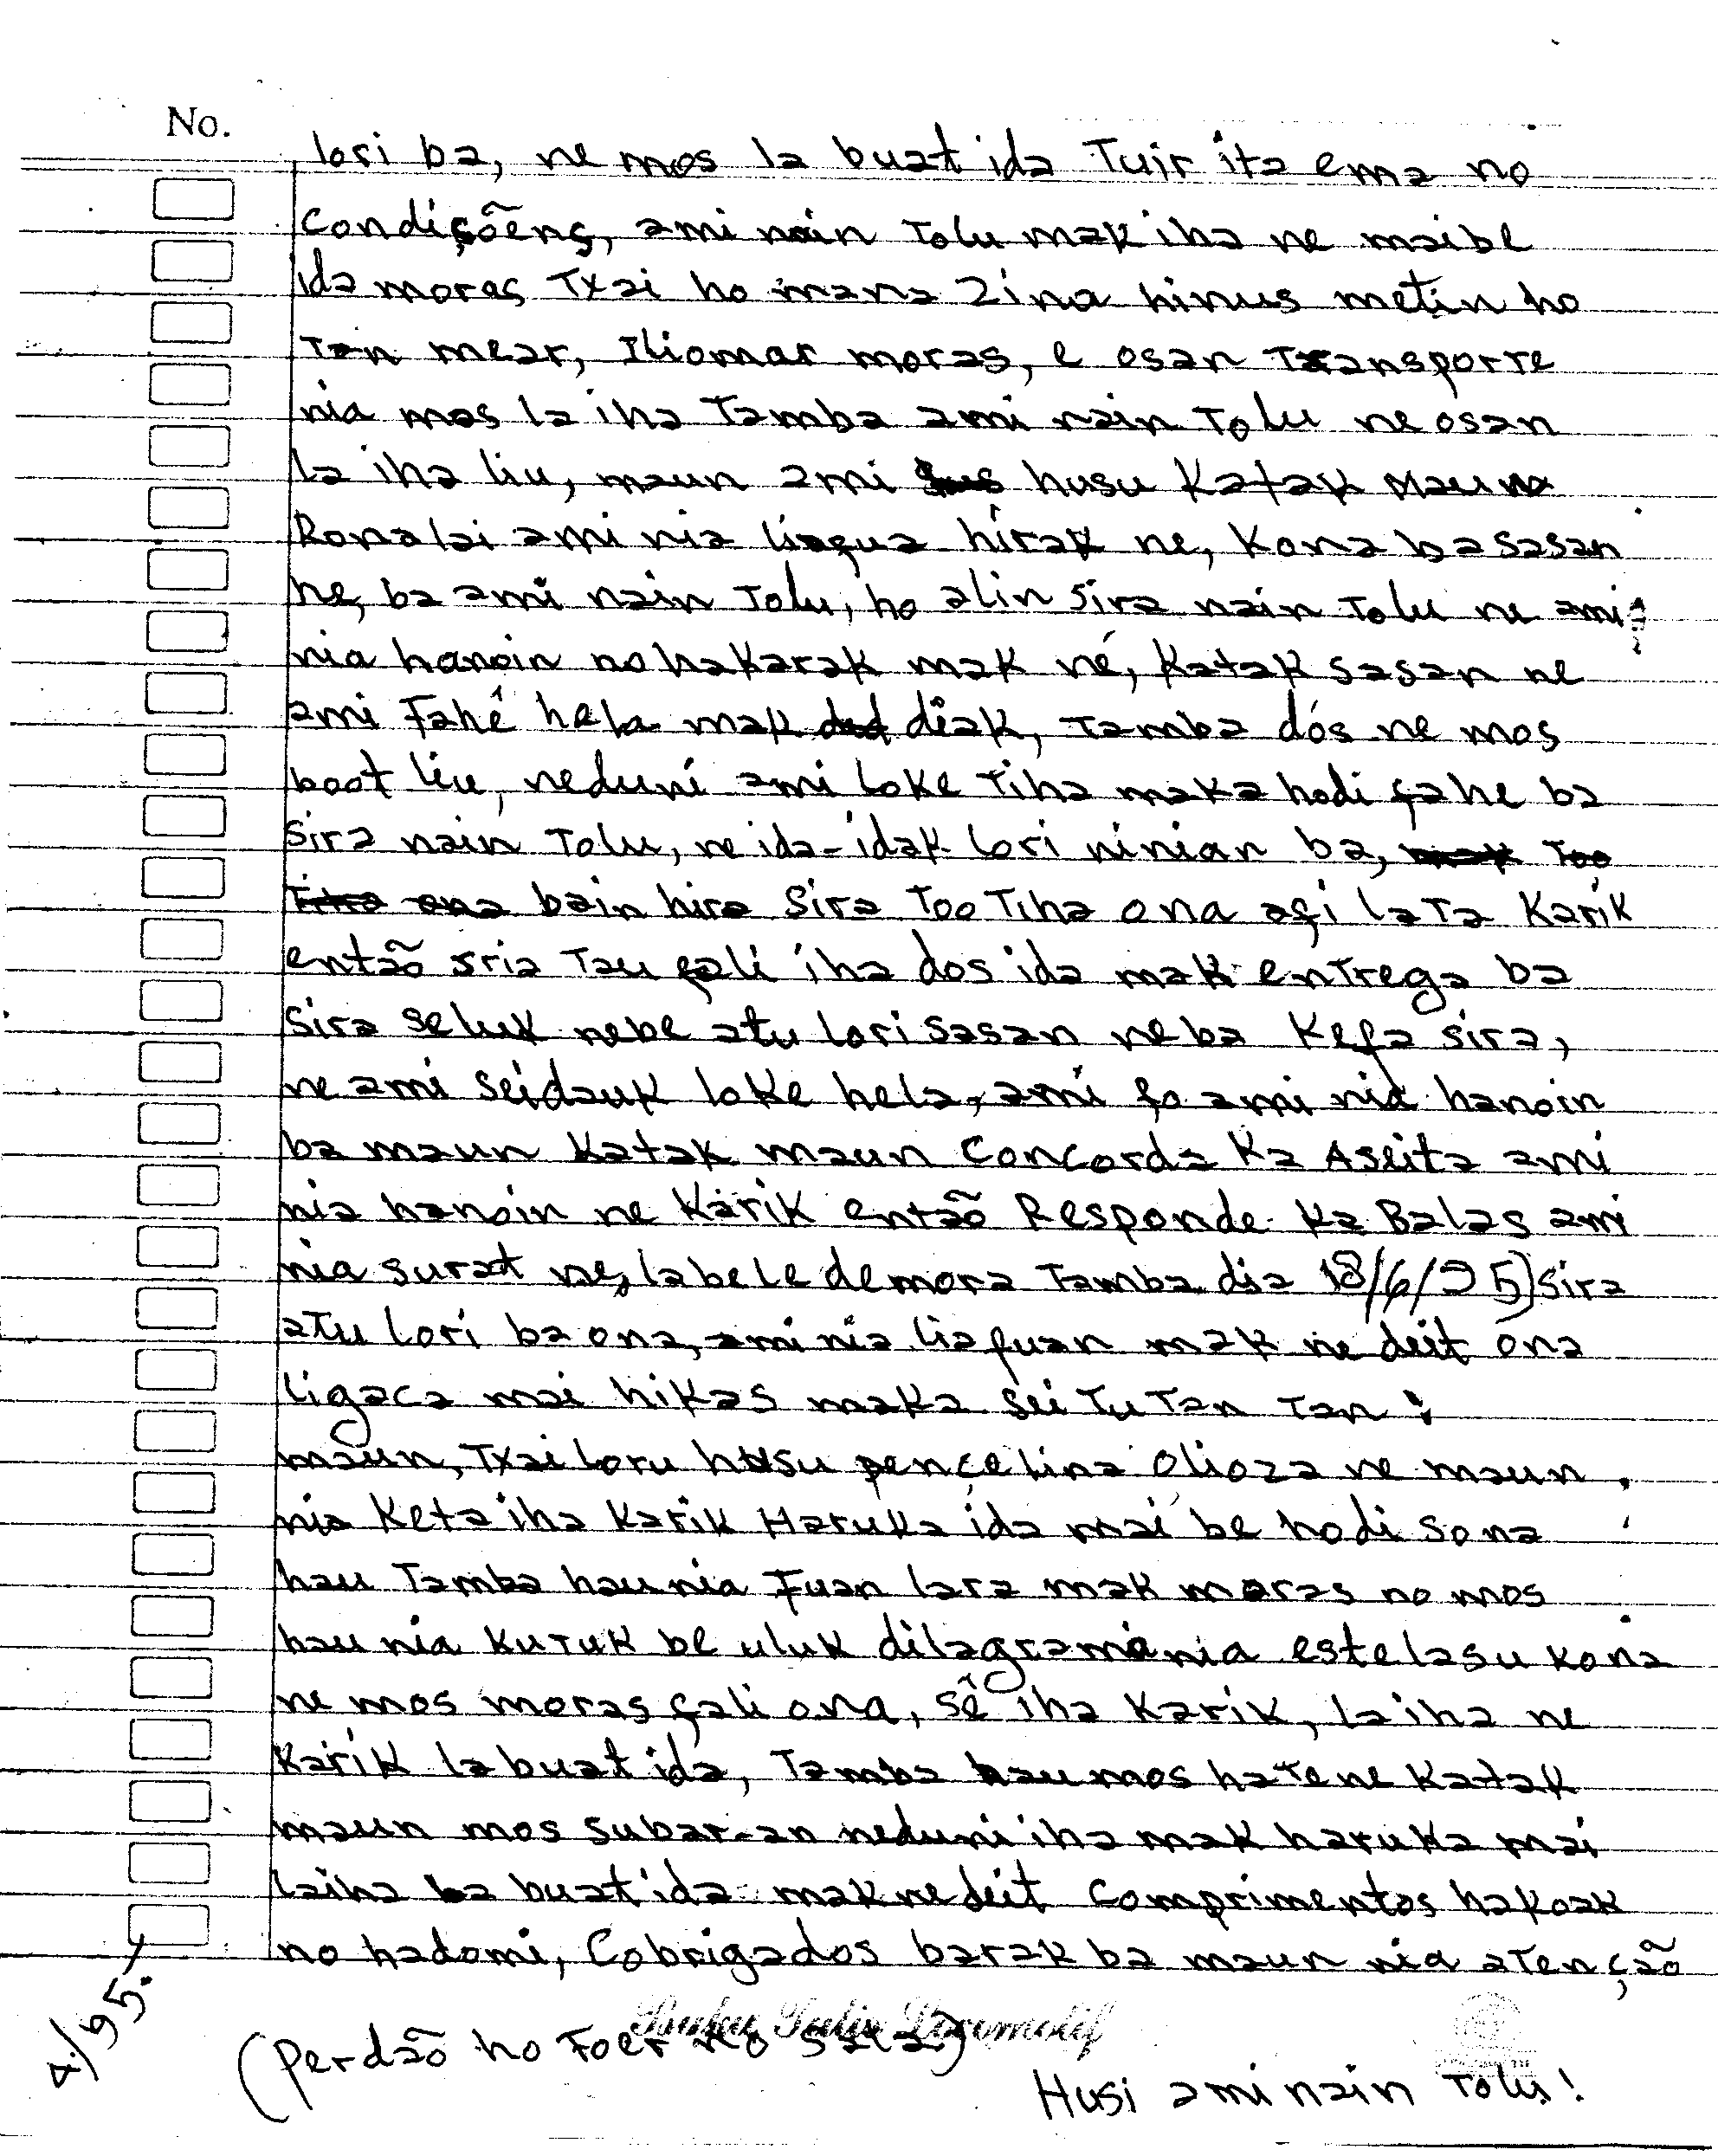 No.
lori ba, ne mos la buat ida Tuir ita ema no
condiçõens, ami nain Tolu mak iha ne maibe
ida moras Txai ho mana Zina hinus metin ho
Tan mear, Iliomar moras, e osan Transporte
nia mos la iha Tamba ami nain Tolu ne osan
la iha liu, maun ami husu Katak Maun
Ronalai ami nia lingua hirak ne, Kona ba sasan
ne, ba ami nain Tolu, ho alin sira nain Tolu ne ami
nia hanoin no hakarak mak né, Katak sasan ne
ami Fahé hela mak diak, Tamba dós ne mos
boot liu, neduni ami loke Tiha maka hodi fahe ba
Sira nain Tolu, ne ida-idak lori ninian ba,
bain hira Sira Too Tiha ona afi lata Karik
então sria Tau fali iha dos ida mak entrega ba
Sira seluk nebe atu lori sasan neba Kefa sira,
ne ami seidauk loke hela, ami fo ami nia hanoin
ba maun Katak maun Concorda Ka Aseita ami
nia hanoin ne Karik então Responde Ka Balas ami
nia surat ne, labele demora Tamba dia 18/6/95) sira
atu lori ba ona, ami nia liafuan mak ne deit ona
ligaca mai hikas maka sei Tutan Tan.
maun, Txai loru husu pencelina Olioza ne maun
nia Keta iha Karik Haruka ida mai be hodi sona
hau Tamba hau nia Fuan lara mak moras no mos
hau nia KuTuk be uluk dilagrama nia estelasu kona
ne mos moras fali ona, sê iha Karik, la iha ne
Karik la buat ida, Tamba hau mos haTene Katak
maun mos subar-an neduni iha mak haruka mai
laiha ba buat ida mak ne deit Comprimentos hakoak
no hadomi, Cobrigados barak ba maun nia aTenção
4/95.
Buku Tulis Locomotif
(Perdão ho Foer no Sala)
Husi ami nain Tolu!